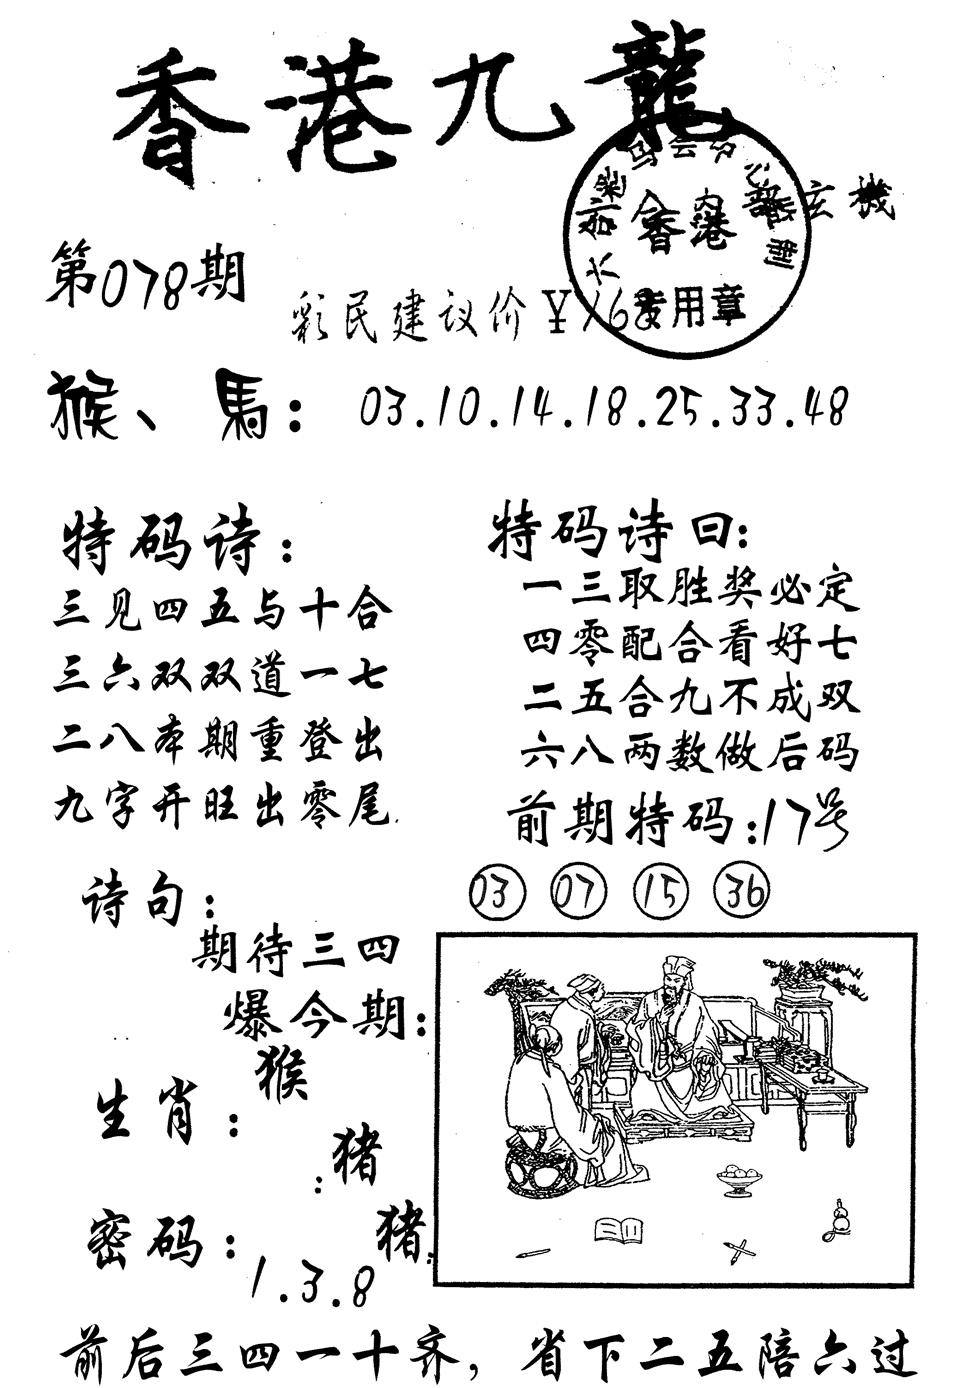 香港九龍
内 玄機
香港
专用章
第078期
彩民建议价￥168
猴、馬：03.10.14.18.25.33.48
特码诗：
三见四五与十合
三六双双道一七
二八本期重登出
九字开旺出零尾.
特码诗曰:
一三取胜奖必定
四零配合看好七
二五合九不成双
六八两数做后码
前期特码:17号
03 07 15 36
诗句：
期待三四
爆今期：
生肖：猴
：猪
猪
密码：1.3.8
前后三四一十齐，省下二五陪六过